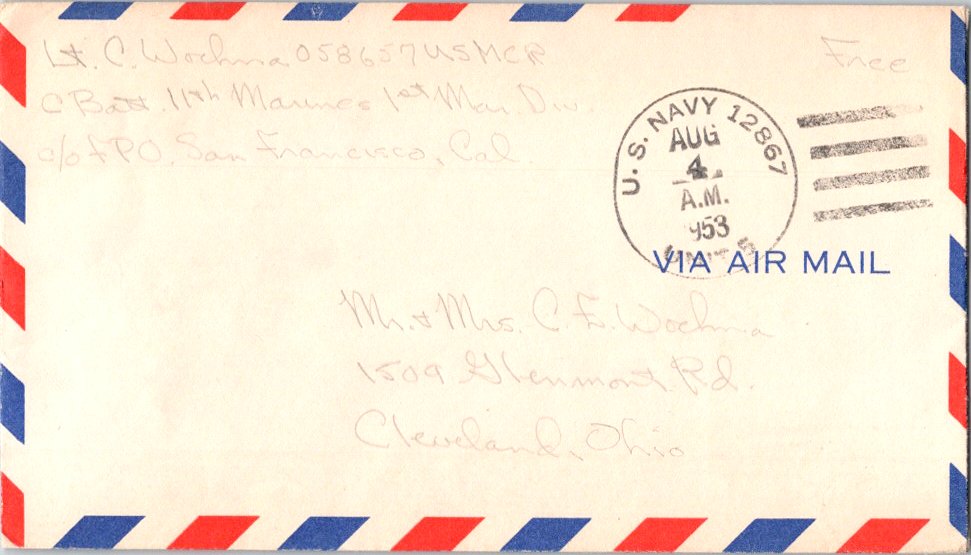 Lt. C. Wochna 058657 USMCR
Free
C Batt. 11th Marines 1st Mar. Div.
c/o FPO, San Francisco, Cal.
U.S. NAVY 12867
AUG
4
A.M.
1953
UNIT 5
VIA AIR MAIL
Mr. & Mrs. C. E. Wochna
1509 Glenmont Rd.
Cleveland, Ohio